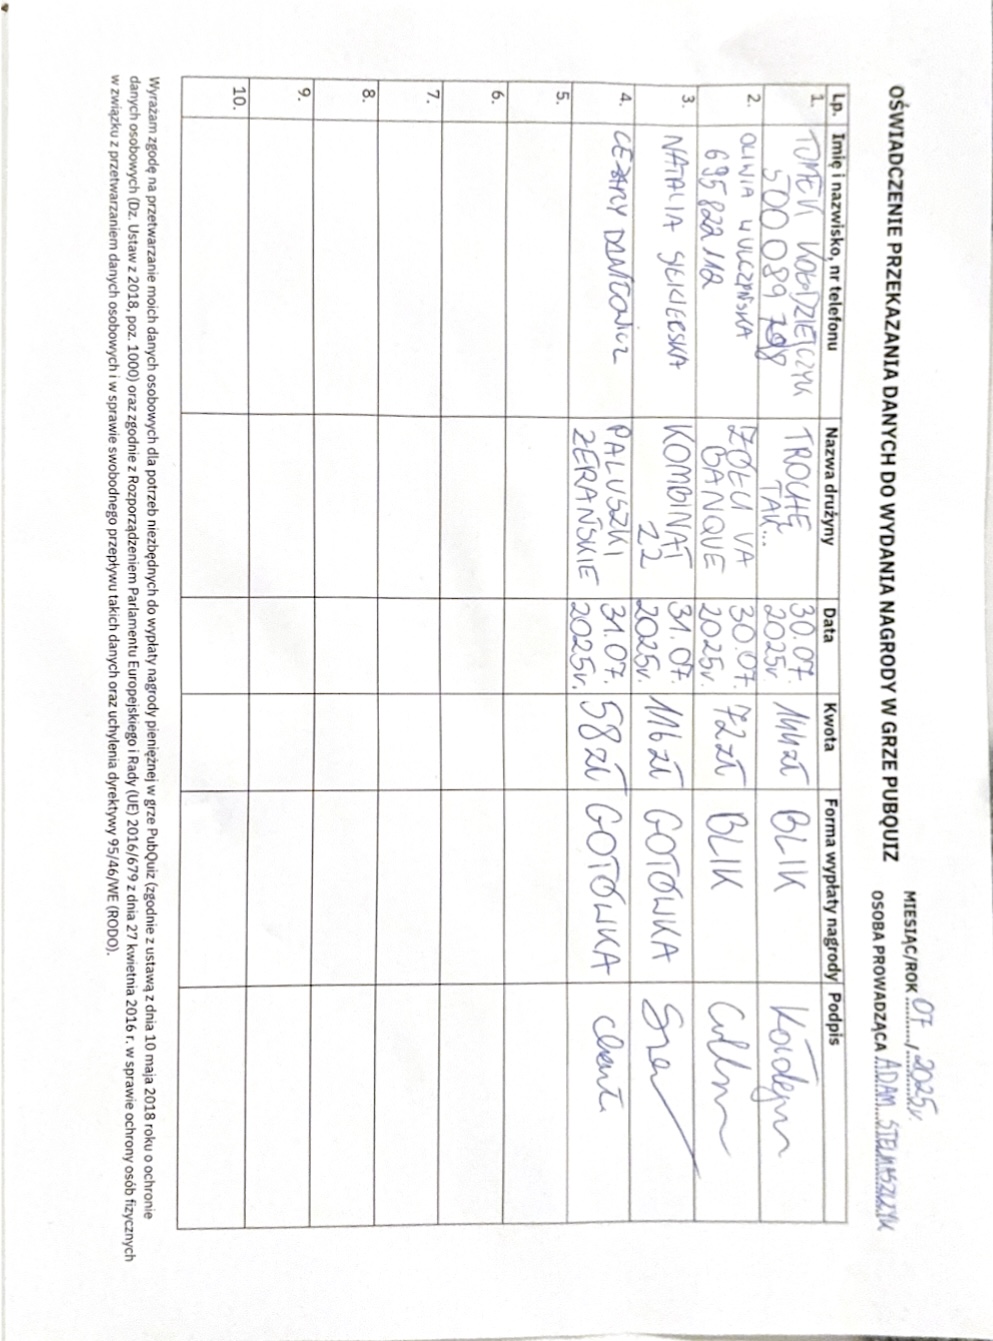 OŚWIADCZENIE PRZEKAZANIA DANYCH DO WYDANIA NAGRODY W GRZE PUBQUIZ
MIESIĄC/ROK 07, 2025r.
OSOBA PROWADZĄCA ADAM STELMASZCZYK
Lp. Imię i nazwisko, nr telefonu Nazwa drużyny Data Kwota Forma wypłaty nagrody Podpis
1. TOMEK KOŁDZIEJCZYK TROCHĘ 30.07. 144zł BLIK
500 089 TAK... 2025r
2. OLIWIA WULCZYŃSKA ŻÓŁCI VA 30.07. 72zł BLIK
695 822 112 BANQUE 2025r.
3. NATALIA KOMBINAT 31.07. 116zł GOTÓWKA
22 2025r.
4. CEZARY DANIŁOWICZ PALUSZKI 31.07. 58zł GOTÓWKA
ŻERAŃSKIE 2025r.
5.
6.
7.
8.
9.
10.
Wyrażam zgodę na przetwarzanie moich danych osobowych dla potrzeb niezbędnych do wypłaty nagrody pieniężnej w grze PubQuiz (zgodnie z ustawą z dnia 10 maja 2018 roku o ochronie
danych osobowych (Dz. Ustaw z 2018, poz. 1000) oraz zgodnie z Rozporządzeniem Parlamentu Europejskiego i Rady (UE) 2016/679 z dnia 27 kwietnia 2016 r. w sprawie ochrony osób fizycznych
w związku z przetwarzaniem danych osobowych i w sprawie swobodnego przepływu takich danych oraz uchylenia dyrektywy 95/46/WE (RODO).